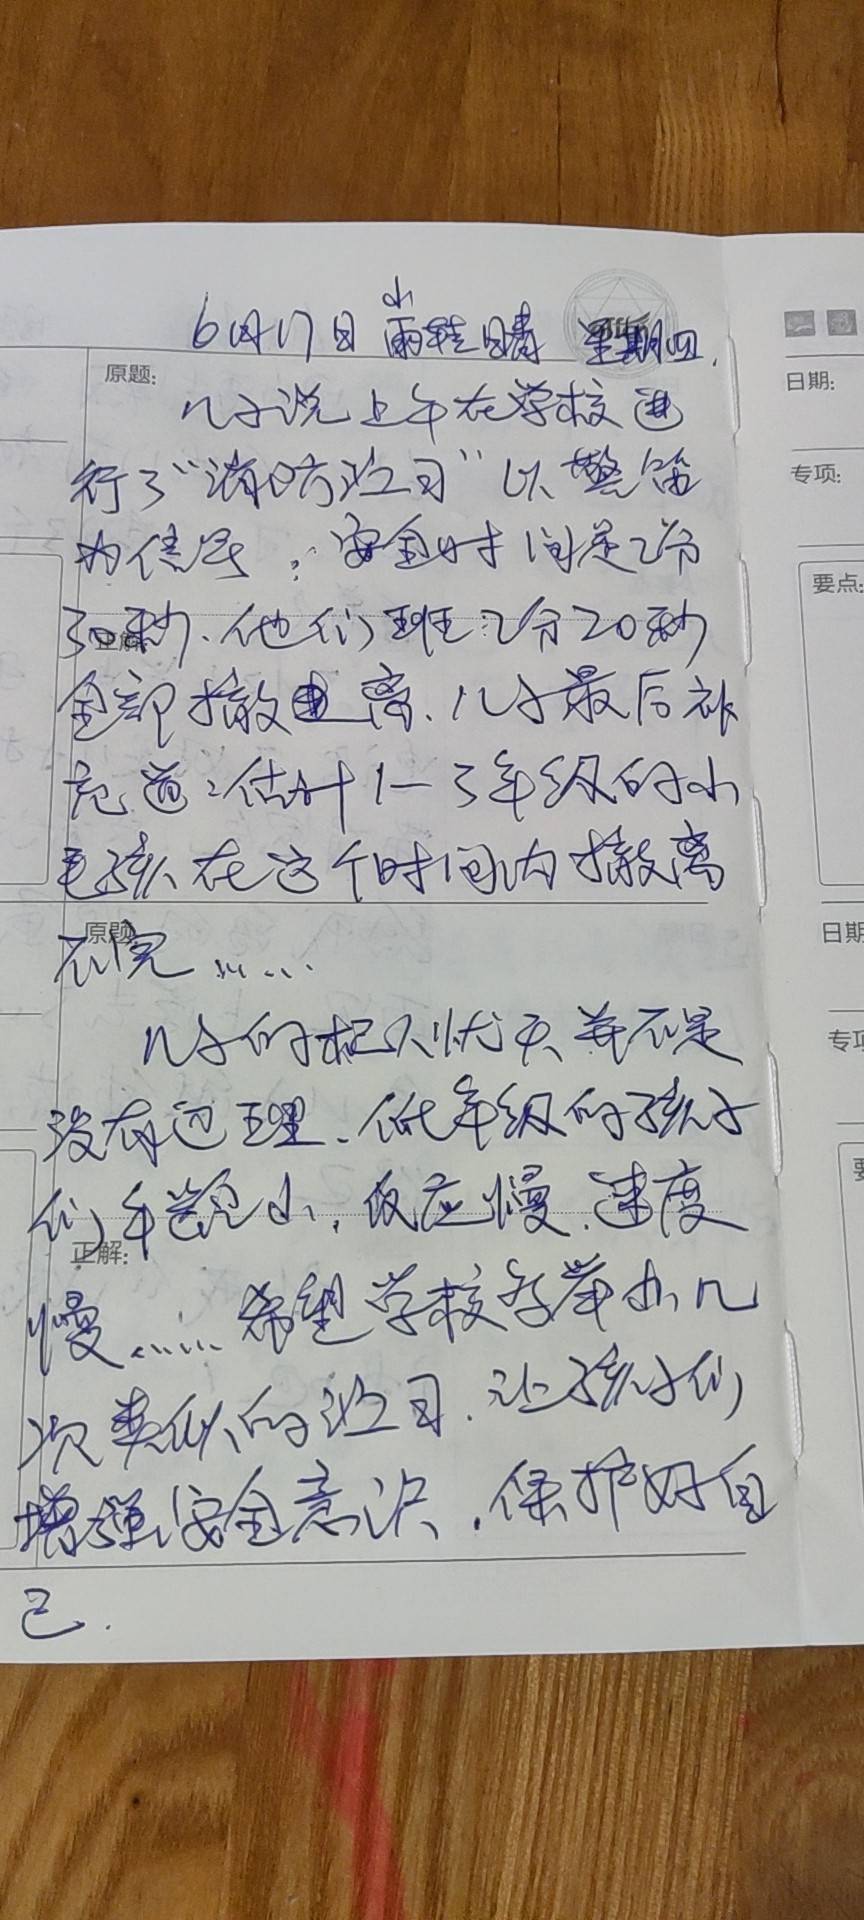 6月17日 小雨转晴 星期四.
原题:
日期:
儿子说上午在学校进
行了“消防演习”以警笛
专项:
为信号,安全时间是2分
要点:
30秒.他们班2分20秒
正解:
全部撤离.儿子最后补
充道:估计1—3年级的小
毛孩在这个时间内撤离
原题
日期
不完……
儿子的杞人忧天并不是
专项
没有道理.低年级的孩子
们年龄小,反应慢.速度
正解:
慢……希望学校多举办几
次类似的演习.让孩子们
增强安全意识,保护好自
己.